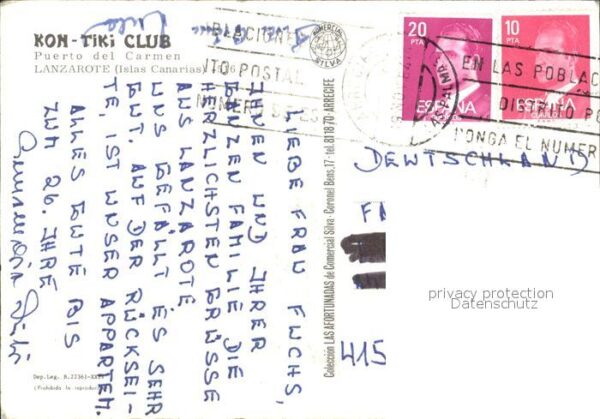 KON-TiKi CLUB
Puerto del Carmen
LANZAROTE (Islas Canarias)
LIEBE FRAU FUCHS,
IHNEN UND IHRER
GANZEN FAMILIE DIE
HERZLICHSTEN GRÜSSE
AUS LANZAROTE
UNS GEFÄLLT ES SEHR
GUT. AUF DER RÜCKSEI-
TE, IST UNSER APPARTEM.
ALLES GUTE BIS
ZUM 26. IHRE
Dep. Leg. B. 22361-XX
(Prohibida la reproducción)
Colección LAS AFORTUNADAS de Comercial Silva - Coronel Bens, 17 - tel. 81 18 70 - ARRECIFE
COMERCIAL SILVA
20 PTA
ESPAÑA
10 PTA
ESPAÑA
EN LAS POBLAC
DISTRITO PO
PONGA EL NUMER
BLACIONE
ITO POSTAL
NUMERO DE ES
DEUTSCHLAND
415
privacy protection
Datenschutz